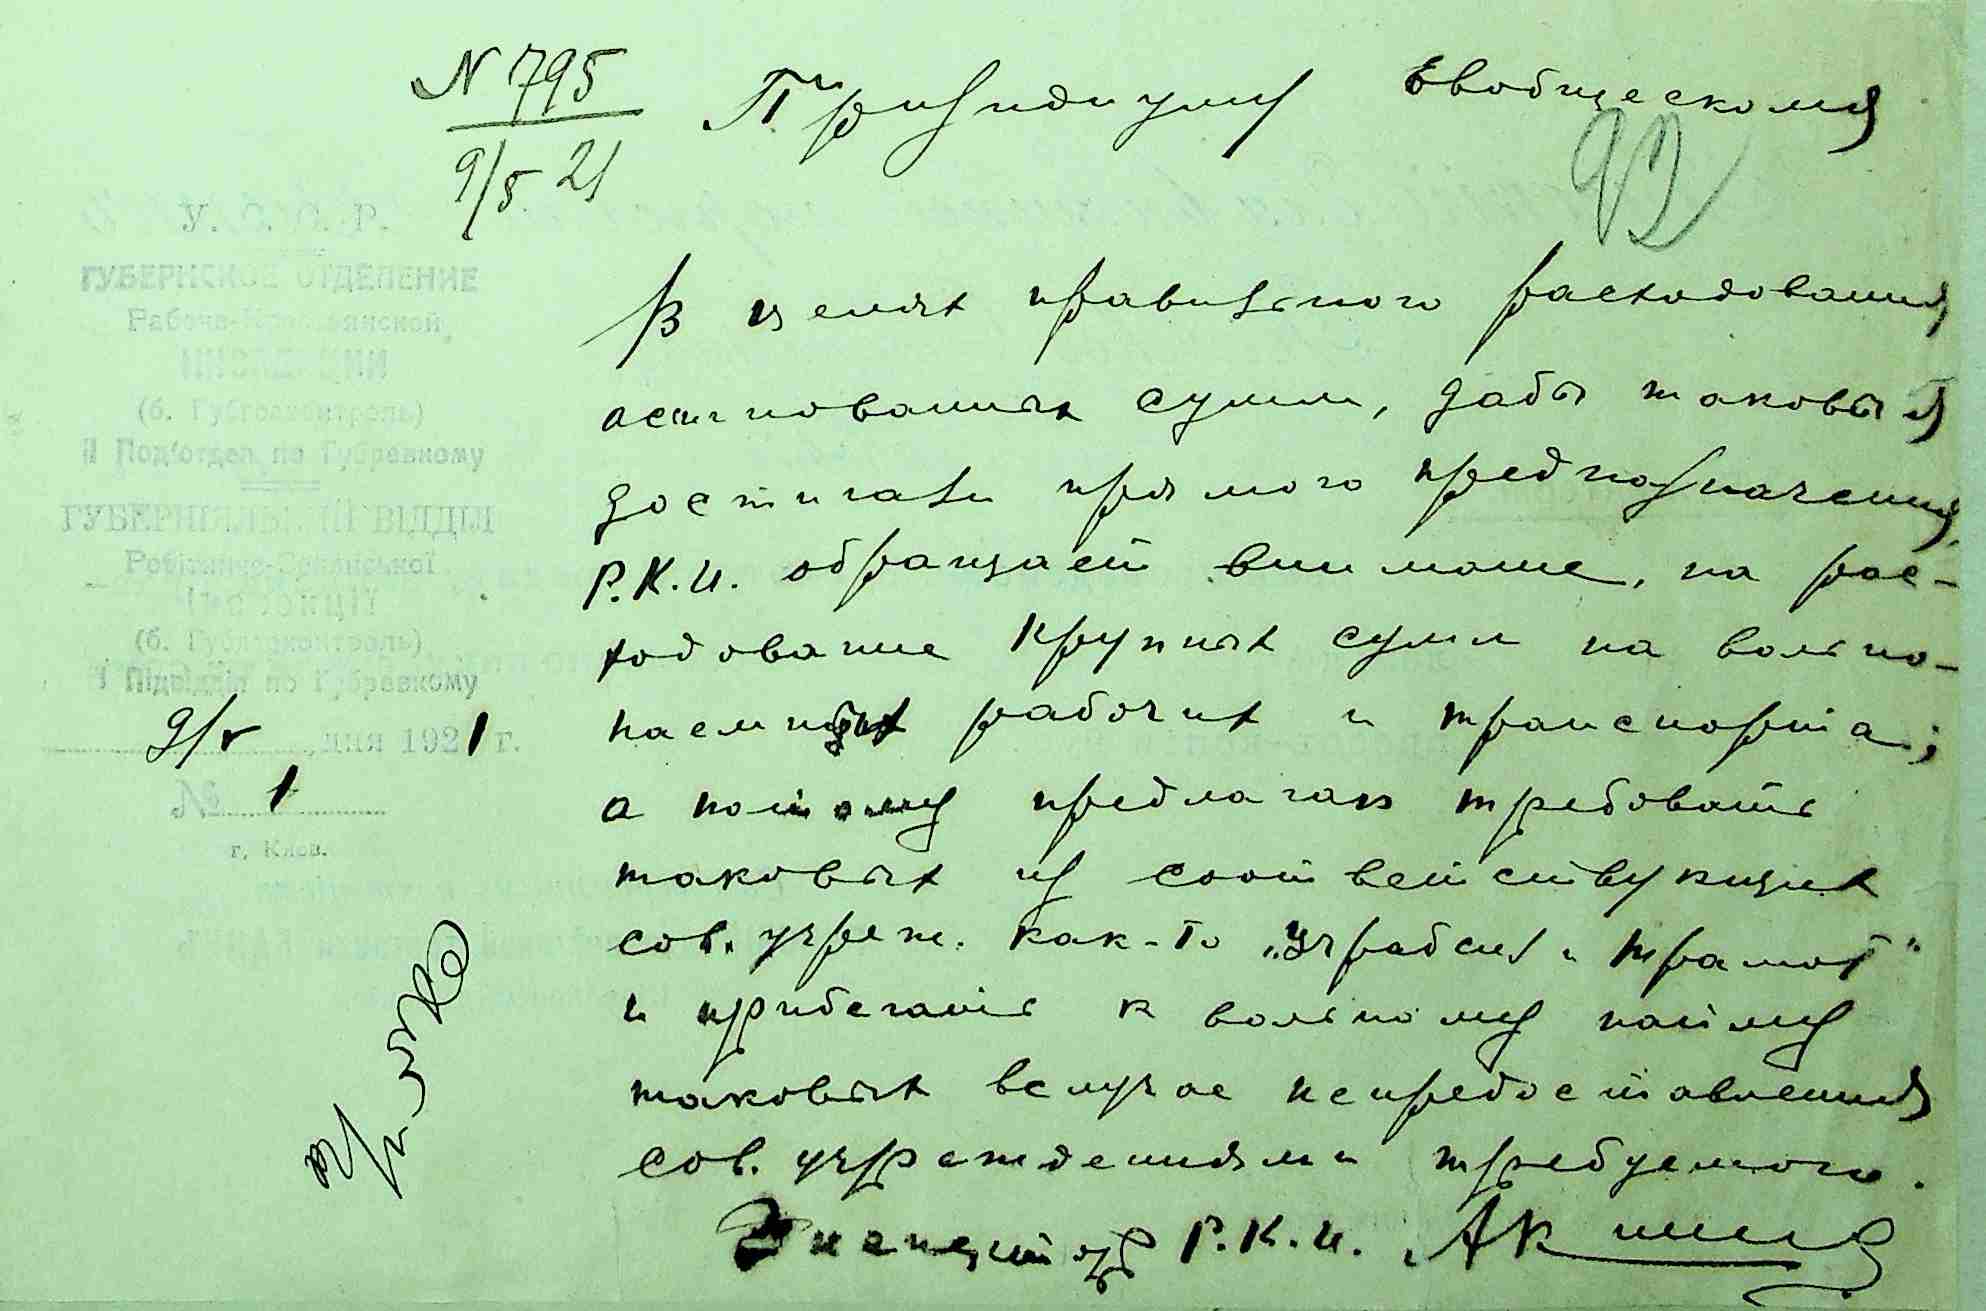 N 795
9/5 21
Призидиуму Евобщескома
92
У. С. С. Р.
ГУБЕРНСКОЕ ОТДЕЛЕНИЕ
Рабоче-Крестьянской
ИНСПЕКЦИИ
(б. Губгосконтроль)
II Под'отдел по Губревкому
ГУБЕРНІЯЛЬНИЙ ВІДДІЛ
Робітниче-Селянської
Інспекції
(б. Губдержконтроль)
Підвідділ по Губревкому
9/V дня 1921 г.
№ 1
г. Киев.
В целях правильного расходования
асигнованных сумм, дабы таковыя
достигали прямого предназначения,
Р.К.И. обращает внимание, на рас-
ходование крупных сумм на вольно-
наемных рабочих и транспорта;
а потому предлагаю требовать
таковых из соответствующих
сов. учреж. как-то „Учрабсил и трамот"
и прибегать к вольному найму
таковых вслучае непредоставления
сов. учреждениями требуемого.
Инспектор Р.К.И.